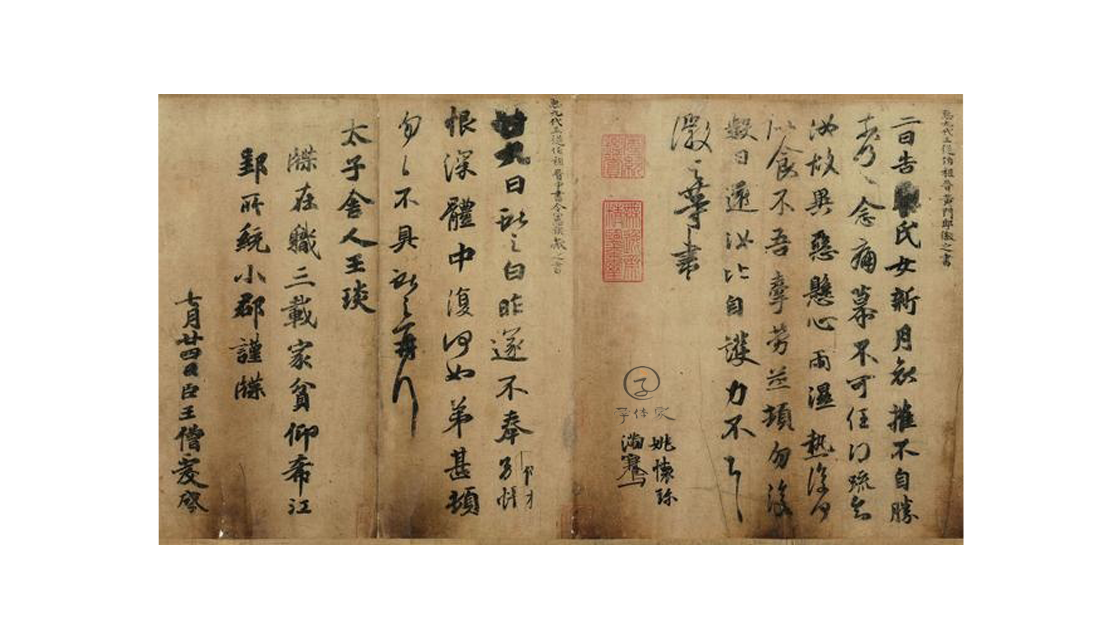 臣九代三從伯祖晉黃門郎徽之書
二日告□氏女新月哀摧不自勝
奈何奈何念痛慕不可任得疏知
汝故異惡懸心雨濕熱復何
似食不吾牽勞並頓勿復
數日還汝比自護力不具
徽之等書
姚懷珍
滿騫
字体家
臣九代三從伯祖晉中書令憲侯獻之書
廿九日獻之白昨遂不奉別悵
恨深體中復何如弟甚頓
匆匆不具獻之再拜
太子舍人王琰
牒在職三載家貧仰希江
郢所統小郡謹牒
七月廿四日臣王僧虔啓